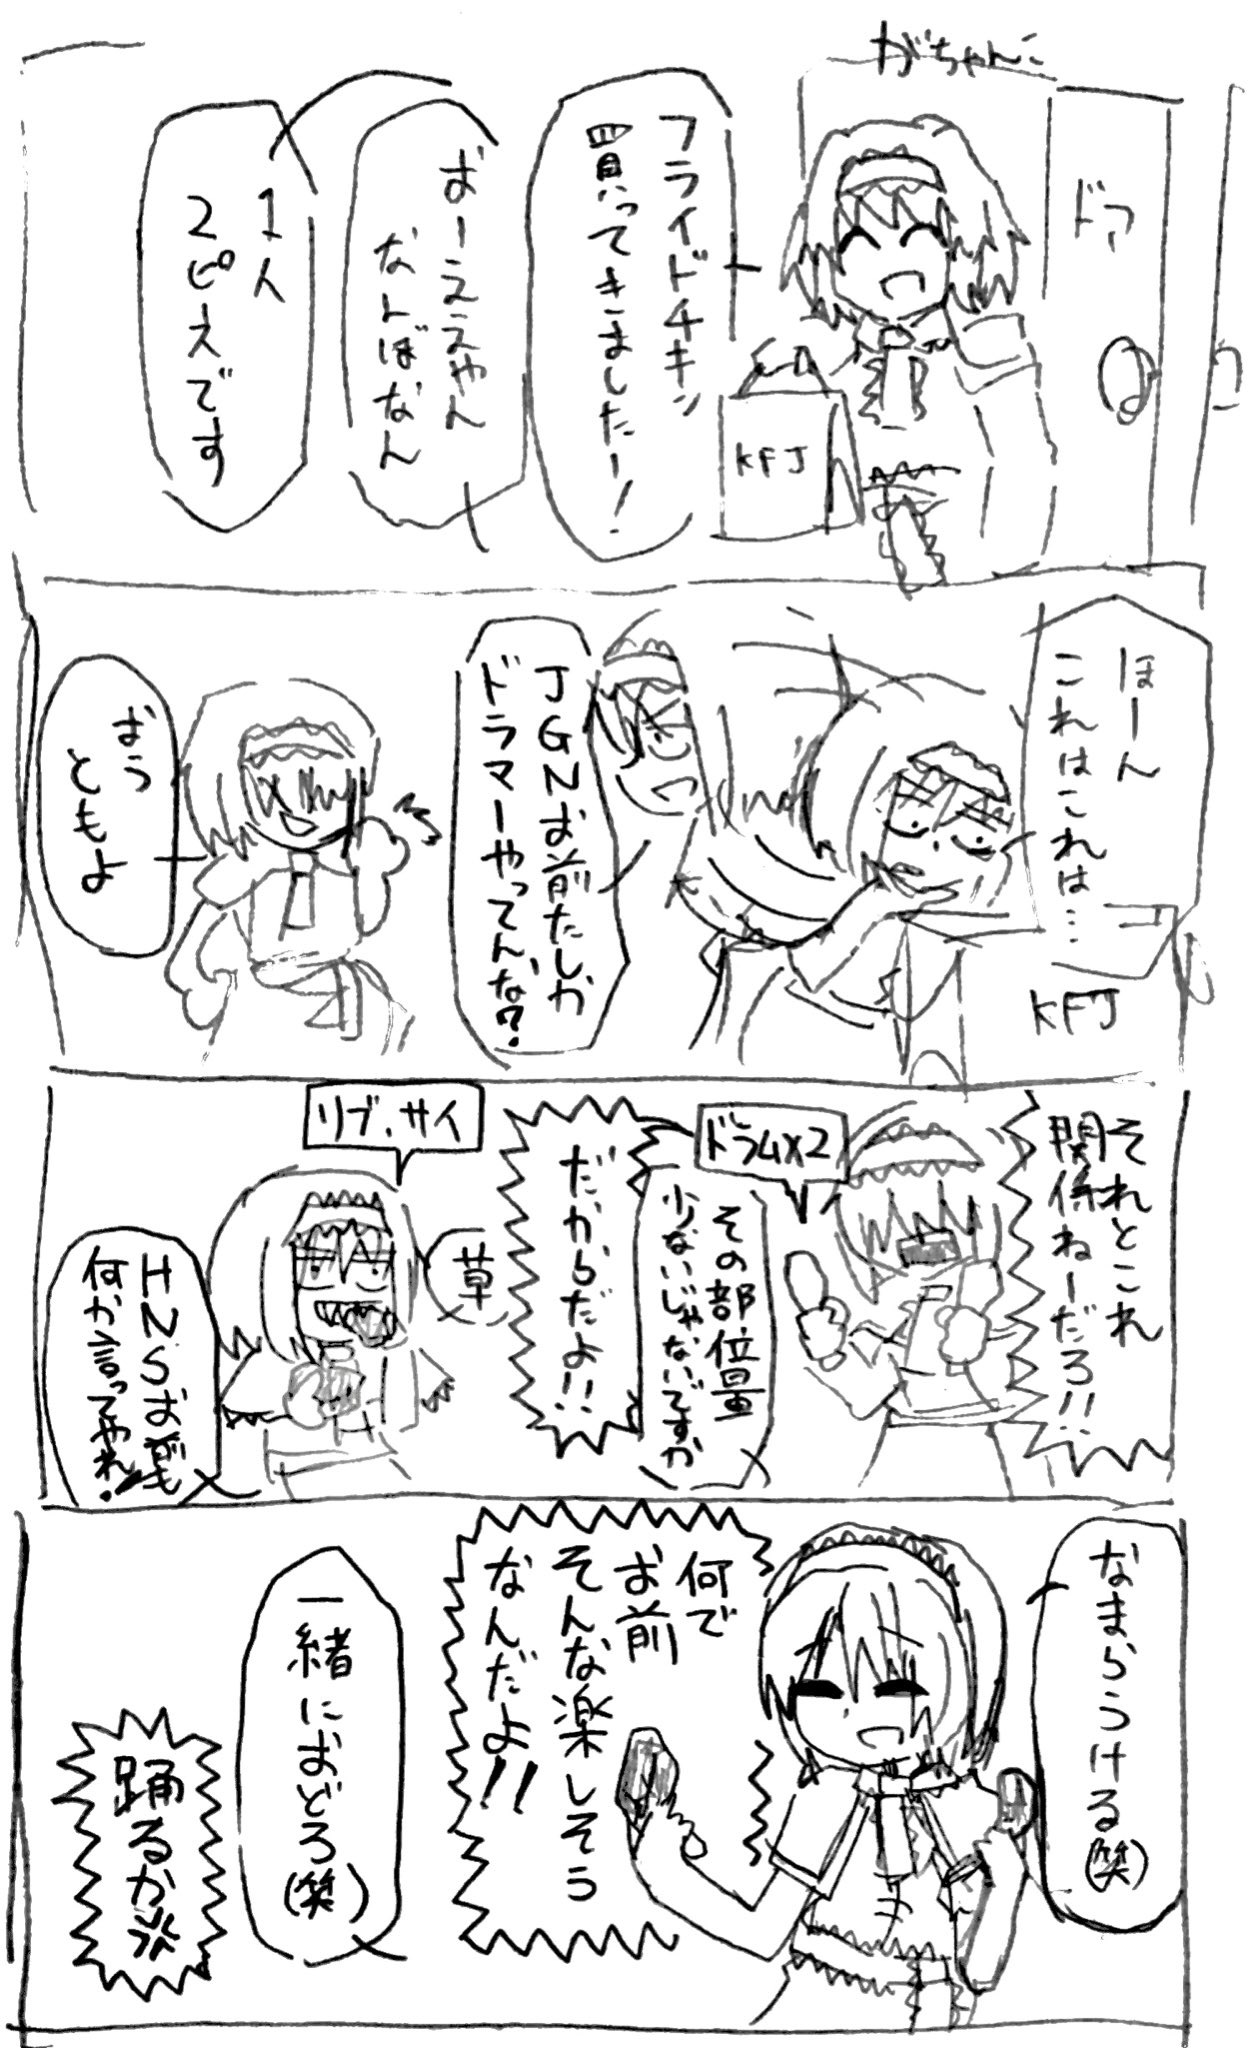 がちゃんこ
ドア
フライドチキン
買ってきましたー!
KFJ
おーええやん
なんぼなん
1人
2ピースです
ほーん
これはこれは…
KFJ
JGNお前たしか
ドラマーやってんな?
おう
ともよ
それとこれ
関係ねーだろ!!
ドラム×2
その部位量
少ないじゃないですか
だからだよ!!
リブ、サイ
草
HNSお前も
何か言ってやれ!
なまらうける(笑)
何で
お前
そんな楽しそう
なんだよ!!
一緒におどろ(笑)
踊るか